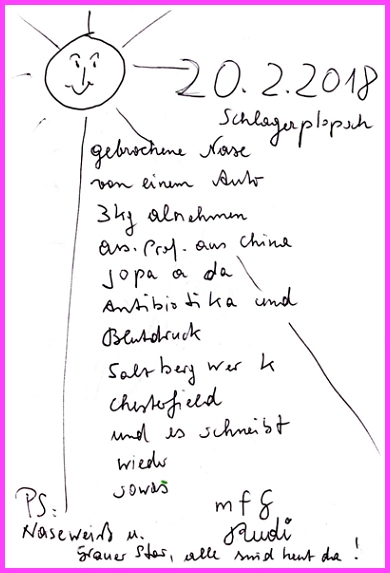 20.2.2018
Schlagerplopsch
gebrochene Nase
von einem Auto
3kg abnehmen
ass. Prof. aus China
jopa a da
Antibiotika und
Blutdruck
Salzberg wer k
Chesterfield
und es schneibt
wieder
sowas
mfg
Rudi
PS:
Naseweiß u.
Grauer Star, alle sind heut da!